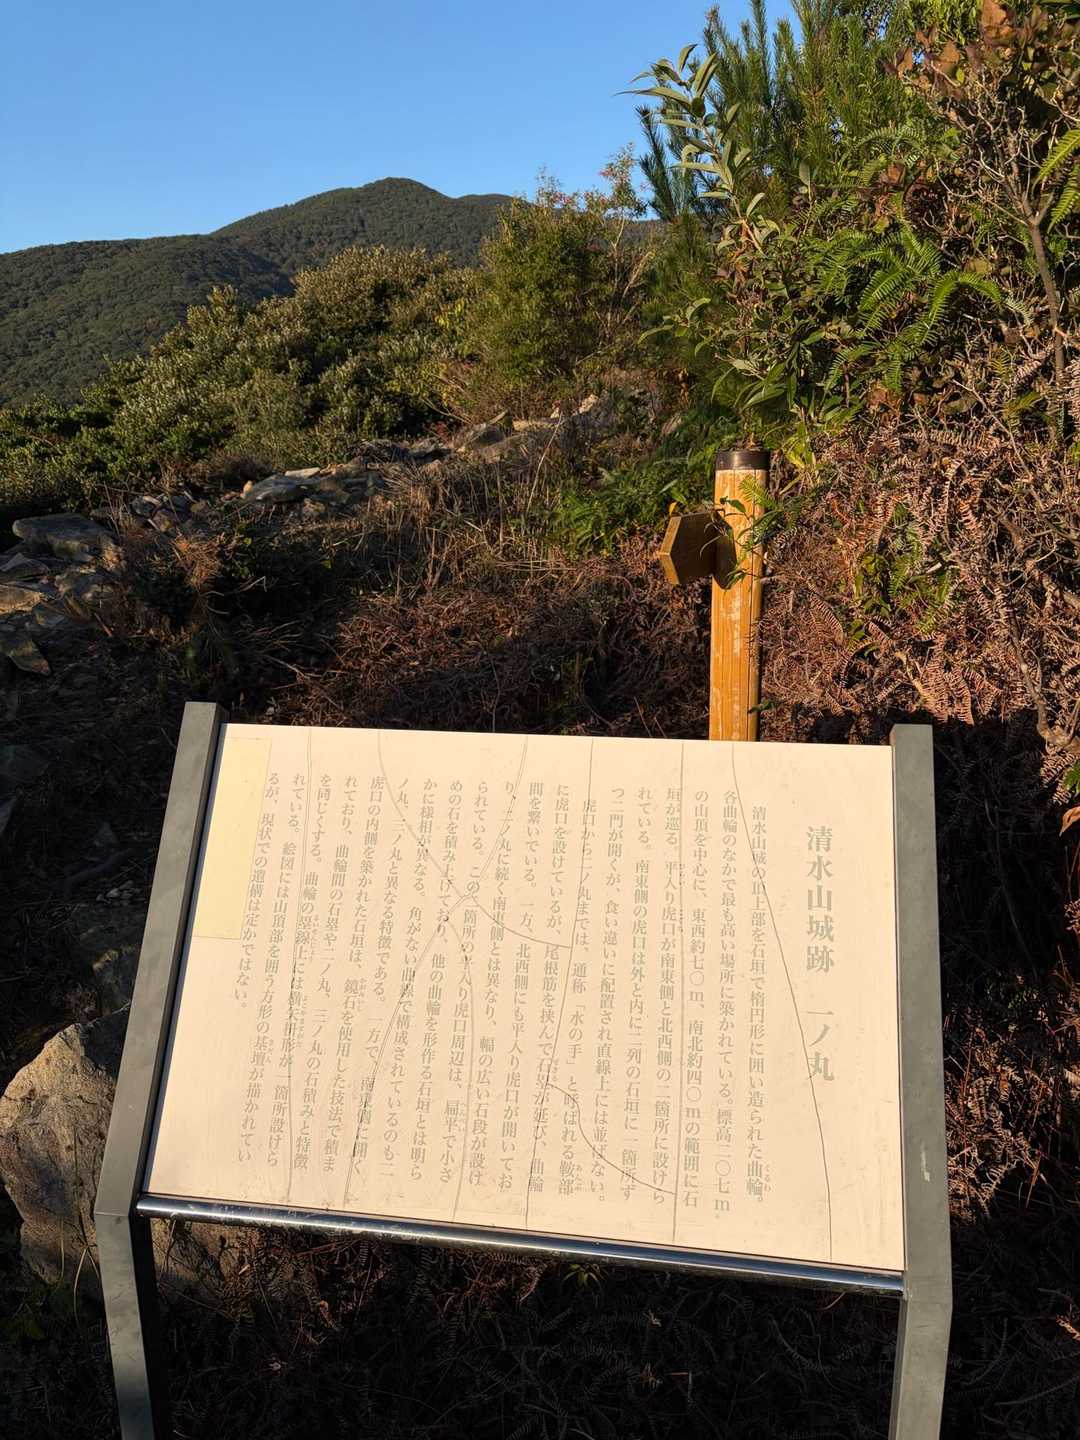 清水山城跡　一ノ丸
清水山城の頂上部を石垣で楕円形に囲い造られた曲輪。
各曲輪のなかで最も高い場所に築かれている。標高二〇七m
の山頂を中心に、東西約七〇m、南北約四〇mの範囲に石
垣が巡る。平入り虎口が南東側と北西側の二箇所に設けら
れている。南東側の虎口は外と内に二列の石垣に一箇所ず
つ二門が開くが、食い違いに配置され直線上には並ばない。
虎口から二ノ丸までは、通称「水の手」と呼ばれる鞍部
に虎口を設けているが、尾根筋を挟んで石塁が延び、曲輪
間を繋いでいる。一方、北西側にも平入り虎口が開いてお
り、二ノ丸に続く南東側とは異なり、幅の広い石段が設け
られている。この箇所の平入り虎口周辺は、扁平で小さ
めの石を積み上げており、他の曲輪を形作る石垣とは明ら
かに様相が異なる。角がない曲線で構成されているのも二
ノ丸、三ノ丸と異なる特徴である。一方で、南東側に開く
虎口の内側を築かれた石垣は、鏡石を使用した技法で積ま
れており、曲輪間の石塁や二ノ丸、三ノ丸の石積みと特徴
を同じくする。曲輪の塁線上には横矢掛形が一箇所設けら
れている。絵図には山頂部を囲う方形の基壇が描かれてい
るが、現状での遺構は定かではない。